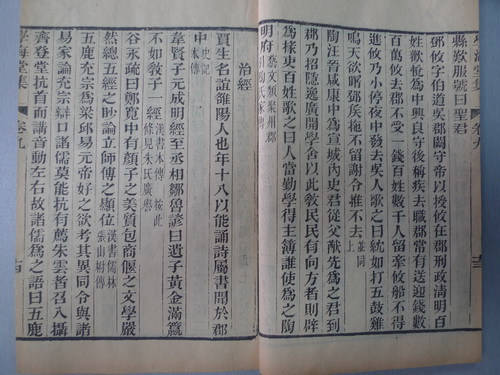 學海堂集 卷九 十三
縣歎服號曰聖君
鄧攸字伯道吳郡闕守帝以授攸在郡刑政清明百
姓歡悅爲中興良守後稱疾去職郡常有送迎錢數
百萬攸去郡不受一錢百姓數千人留牽攸船不得
進攸乃小停夜中發去吳人歌之曰紞如打五鼓雞
鳴天欲曙鄧侯拖不留謝令推不去並同上
陶汪晉咸康中爲宣城內史君從父猷先爲之君到
郡乃招隱逸廣開學舍以此敎民民有向方者則辟
爲掾吏百姓歌之曰人當勤學得主簿誰使爲之陶
明府藝文類聚州郡部引陶氏家傳
治經
賈生名誼雒陽人也年十八以能誦詩屬書聞於郡
中史記本傳
韋賢子元成明經至丞相鄒魯諺曰遺子黃金滿籝
不如敎子一經漢書本傳 按此條見朱氏廣譽
谷永疏曰鄭寬中有顏子之美質包商偃之文學嚴
然總五經之眇論立師傅之顯位漢書儒林張山拊傳
五鹿充宗爲梁邱易元帝好之欲考其異同令與諸
易家論充宗辯口諸儒莫能抗有薦朱雲者召入攝
齊登堂抗首而講音動左右故諸儒爲之語曰五鹿
學海堂集 卷九 十四